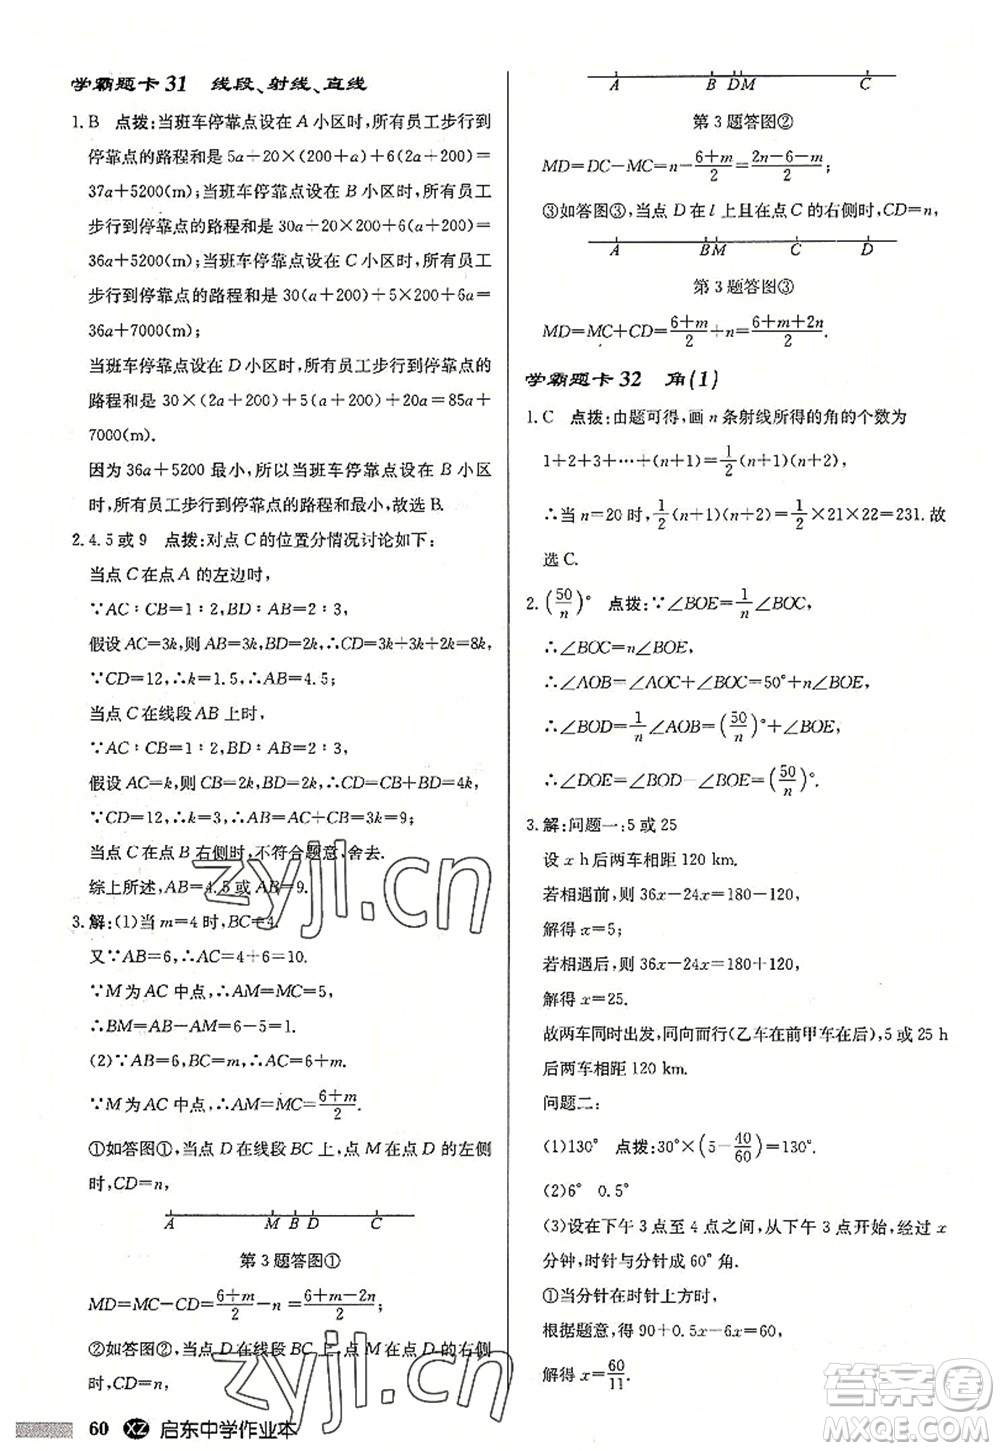 学霸题卡 31 线段、射线、直线
1. B 点拨:当班车停靠点设在 A 小区时,所有员工步行到
停靠点的路程和是 5a+20×(200+a)+6(2a+200)=
37a+5200(m);当班车停靠点设在 B 小区时,所有员工
步行到停靠点的路程和是 30a+20×200+6(a+200)=
36a+5200(m);当班车停靠点设在 C 小区时,所有员工
步行到停靠点的路程和是 30(a+200)+5×200+6a=
36a+7000(m);
当班车停靠点设在 D 小区时,所有员工步行到停靠点的
路程和是 30×(2a+200)+5(a+200)+20a=85a+
7000(m).
因为 36a+5200 最小,所以当班车停靠点设在 B 小区
时,所有员工步行到停靠点的路程和最小,故选 B.
2. 4.5 或 9 点拨:对点 C 的位置分情况讨论如下:
当点 C 在点 A 的左边时,
∵AC∶CB=1∶2,BD∶AB=2∶3,
假设 AC=3k,则 AB=3k,BD=2k,∴CD=3k+3k+2k=8k,
∵CD=12,∴k=1.5,∴AB=4.5;
当点 C 在线段 AB 上时,
∵AC∶CB=1∶2,BD∶AB=2∶3,
假设 AC=k,则 CB=2k,BD=2k,∴CD=CB+BD=4k,
∵CD=12,∴k=3,∴AB=AC+CB=3k=9;
当点 C 在点 B 右侧时,不符合题意,舍去.
综上所述,AB=4.5 或 AB=9.
3. 解:(1)当 m=4 时,BC=4.
又∵AB=6,∴AC=4+6=10.
∵M 为 AC 中点,∴AM=MC=5,
∴BM=AB−AM=6−5=1.
(2)∵AB=6,BC=m,∴AC=6+m,
∵M 为 AC 中点,∴AM=MC=(6+m)/2.
①如答图①,当点 D 在线段 BC 上,点 M 在点 D 的左侧
时,CD=n,
A M B D C
第 3 题答图①
MD=MC−CD=(6+m)/2−n=(6+m−2n)/2;
②如答图②,当点 D 在线段 BC 上,点 M 在点 D 的右侧
时,CD=n,
A B D M C
第 3 题答图②
MD=DC−MC=n−(6+m)/2=(2n−6−m)/2;
③如答图③,当点 D 在 l 上且在点 C 的右侧时,CD=n,
A B M C D
第 3 题答图③
MD=MC+CD=(6+m)/2+n=(6+m+2n)/2.
学霸题卡 32 角(1)
1. C 点拨:由题可得,画 n 条射线所得的角的个数为
1+2+3+…+(n+1)=1/2(n+1)(n+2),
∴当 n=20 时,1/2(n+1)(n+2)=1/2×21×22=231.故
选 C.
2. (50/n)° 点拨:∵∠BOE=1/n∠BOC,
∴∠BOC=n∠BOE,
∴∠AOB=∠AOC+∠BOC=50°+n∠BOE,
∴∠BOD=1/n∠AOB=(50/n)°+∠BOE,
∴∠DOE=∠BOD−∠BOE=(50/n)°.
3. 解:问题一:5 或 25
设 x h 后两车相距 120 km.
若相遇前,则 36x−24x=180−120,
解得 x=5;
若相遇后,则 36x−24x=180+120,
解得 x=25.
故两车同时出发,同向而行(乙车在前甲车在后),5 或 25 h
后两车相距 120 km.
问题二:
(1)130° 点拨:30°×(5−40/60)=130°.
(2)6° 0.5°
(3)设在下午 3 点至 4 点之间,从下午 3 点开始,经过 x
分钟,时针与分针成 60° 角.
①当分针在时针上方时,
根据题意,得 90+0.5x−6x=60,
解得 x=60/11.
60 XZ 启东中学作业本
zyjl.cn
zyjl.cn
答案圈
MXQE.COM